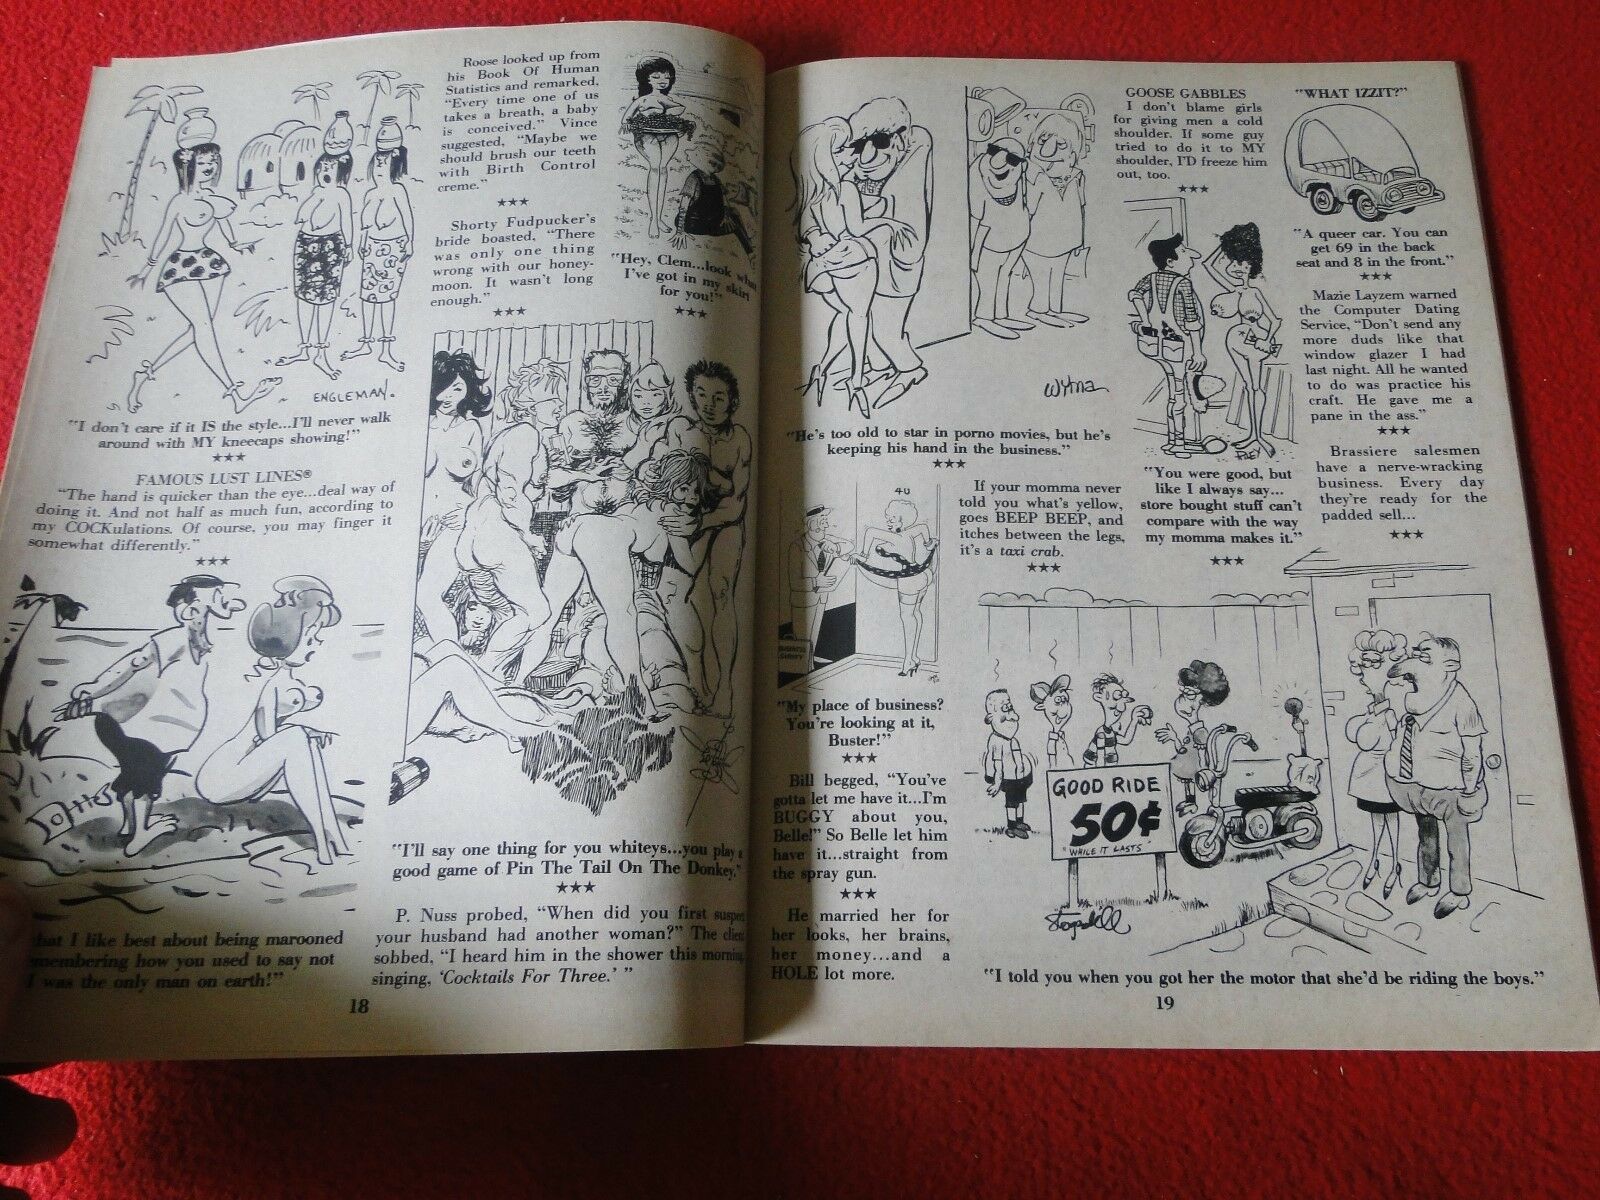 ENGLEMAN.
"I don't care if it IS the style...I'll never walk
around with MY kneecaps showing!"
★★★
FAMOUS LUST LINES®
"The hand is quicker than the eye...deal way of
doing it. And not half as much fun, according to
my COCKulations. Of course, you may finger it
somewhat differently."
★★★
I like best about being marooned
how you used to say not
I was the only man on earth!"
Roose looked up from
his Book Of Human
Statistics and remarked,
"Every time one of us
takes a breath, a baby
is conceived." Vince
suggested, "Maybe we
should brush our teeth
with Birth Control
creme."
★★★
Shorty Fudpucker's
bride boasted, "There
was only one thing
wrong with our honey-
moon. It wasn't long
enough."
★★★
"Hey, Clem...look what
I've got in my skirt
for you!"
★★★
"I'll say one thing for you whiteys...you play a
good game of Pin The Tail On The Donkey."
★★★
P. Nuss probed, "When did you first suspect
your husband had another woman?" The
sobbed, "I heard him in the shower this morning
singing, 'Cocktails For Three.' "
18
Wyma
"He's too old to star in porno movies, but he's
keeping his hand in the business."
★★★
40
BUSINESS
SURVEY
"My place of business?
You're looking at it,
Buster!"
★★★
Bill begged, "You've
gotta let me have it...I'm
BUGGY about you,
Belle!" So Belle let him
have it...straight from
the spray gun.
★★★
He married her for
her looks, her brains,
her money...and a
HOLE lot more.
If your momma never
told you what's yellow,
goes BEEP BEEP, and
itches between the legs,
it's a taxi crab.
★★★
GOOSE GABBLES
I don't blame girls
for giving men a cold
shoulder. If some guy
tried to do it to MY
shoulder, I'D freeze him
out, too.
★★★
"You were good, but
like I always say...
store bought stuff can't
compare with the way
my momma makes it."
★★★
"WHAT IZZIT?"
"A queer car. You can
get 69 in the back
seat and 8 in the front."
★★★
Mazie Layzem warned
the Computer Dating
Service, "Don't send any
more duds like that
window glazer I had
last night. All he wanted
to do was practice his
craft. He gave me a
pane in the ass."
★★★
Brassiere salesmen
have a nerve-wracking
business. Every day
they're ready for the
padded sell...
★★★
GOOD RIDE
50¢
"WHILE IT LASTS"
"I told you when you got her the motor that she'd be riding the boys."
19